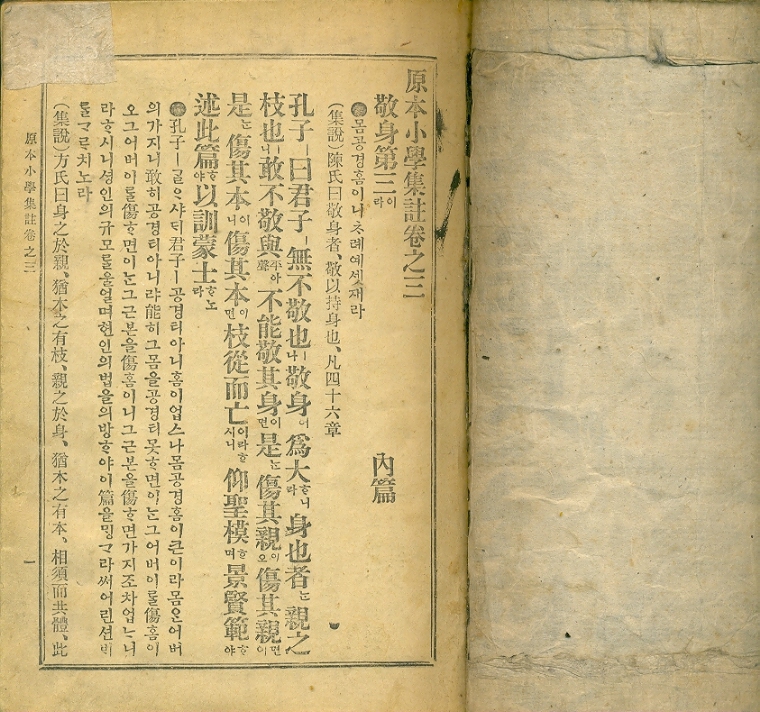 原本小學集註卷之三
敬身第三이라 內篇
몸공경홈이니ᄎᆞ례예셋재라
(集說)陳氏曰敬身者、敬以持身也、凡四十六章
孔子ㅣ曰君子ㅣ無不敬也ㅣ나敬身이爲大ᄒᆞ니라身也者ᄂᆞᆫ親之
枝也ㅣ니敢不敬與平聲아不能敬其身이면是ᄂᆞᆫ傷其親이오傷其親이면
是ᄂᆞᆫ傷其本이니傷其本이면枝從而亡이라ᄒᆞ시니仰聖模ᄒᆞ며景賢範ᄒᆞ야
述此篇ᄒᆞ야以訓蒙士ᄒᆞ노라
孔子ㅣᄀᆞᆯᄋᆞ샤ᄃᆡ君子ㅣ공경티아니홈이업스나몸공경홈이큰이라몸은어버
의가지니敢히공경티아니랴能히그몸을공경티못ᄒᆞ면이ᄂᆞᆫ그어버이ᄅᆞᆯ傷홈이
오그어버이ᄅᆞᆯ傷ᄒᆞ면이ᄂᆞᆫ그근본을傷홈이니그근본을傷ᄒᆞ면가지조차업ᄂᆞ니
라ᄒᆞ시니셩인의규모ᄅᆞᆯ울얼며현인의법을의방ᄒᆞ야이篇을ᄆᆡᆼᄀᆞ라써어린션ᄇᆡ
ᄅᆞᆯᄀᆞᄅᆞ치노라
(集說)方氏曰身之於親、猶木之有枝、親之於身、猶木之有本、相須而共體、此
原本小學集註卷之三 一